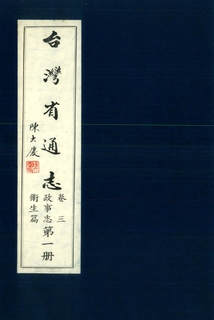 台灣省通志
陳大慶
卷三
政事志
衛生篇
第一册